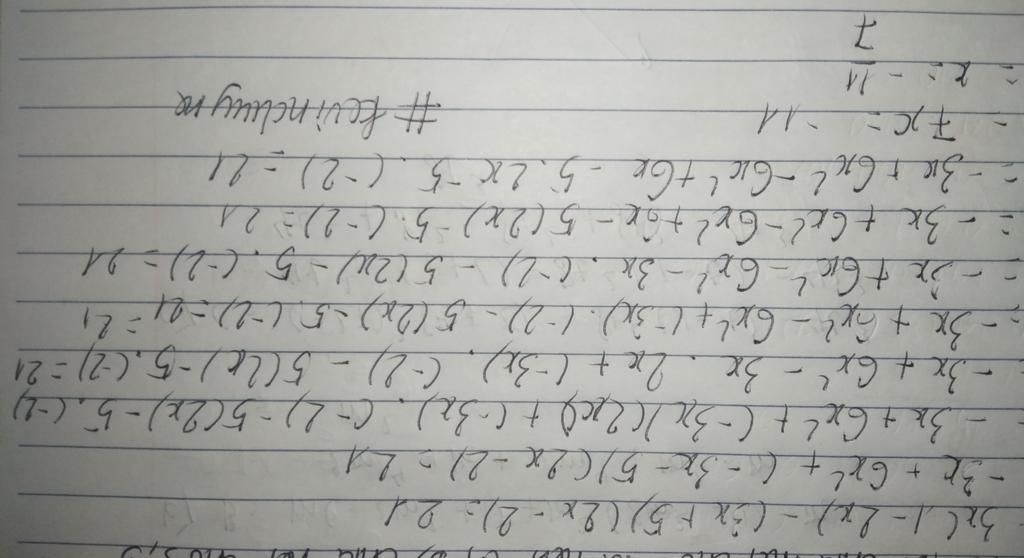 3x(1-2x)-(3x+5)(2x-2)=21
-3x+6x²+(-3x-5)(2x-2)=21
-3x+6x²+(-3x)(2x)+(-3x).(-2)-5(2x)-5.(-2)
= -3x+6x²-3x.2x+(-3x).(-2)-5(2x)-5(-2)=21
= -3x+6x²-6x²+(-3x).(-2)-5(2x)-5.(-2)=21 =21
= -3x+6x²-6x²-3x.(-2)-5(2x)-5.(-2)=21
= -3x+6x²-6x²+6x-5(2x)-5.(-2)=21
= -3x+6x²-6x²+6x-5.2x-5.(-2)=21
= 7x=-11
#kevinduyne
= x=-11/7